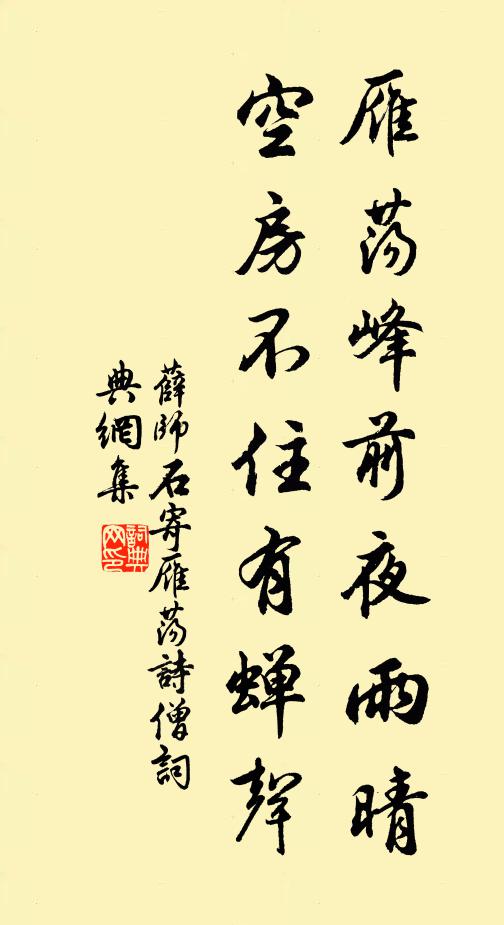 雁荡峰前夜雨晴
空房不住有蝉聲
薛師石寄雁荡詩僧詞
典網集
詞典網印